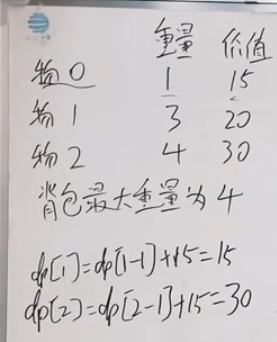 重量 价值
物0 1 15
物1 3 20
物2 4 30
背包最大重量为4
dp[1]=dp[1-1]+15=15
dp[2]=dp[2-1]+15=30